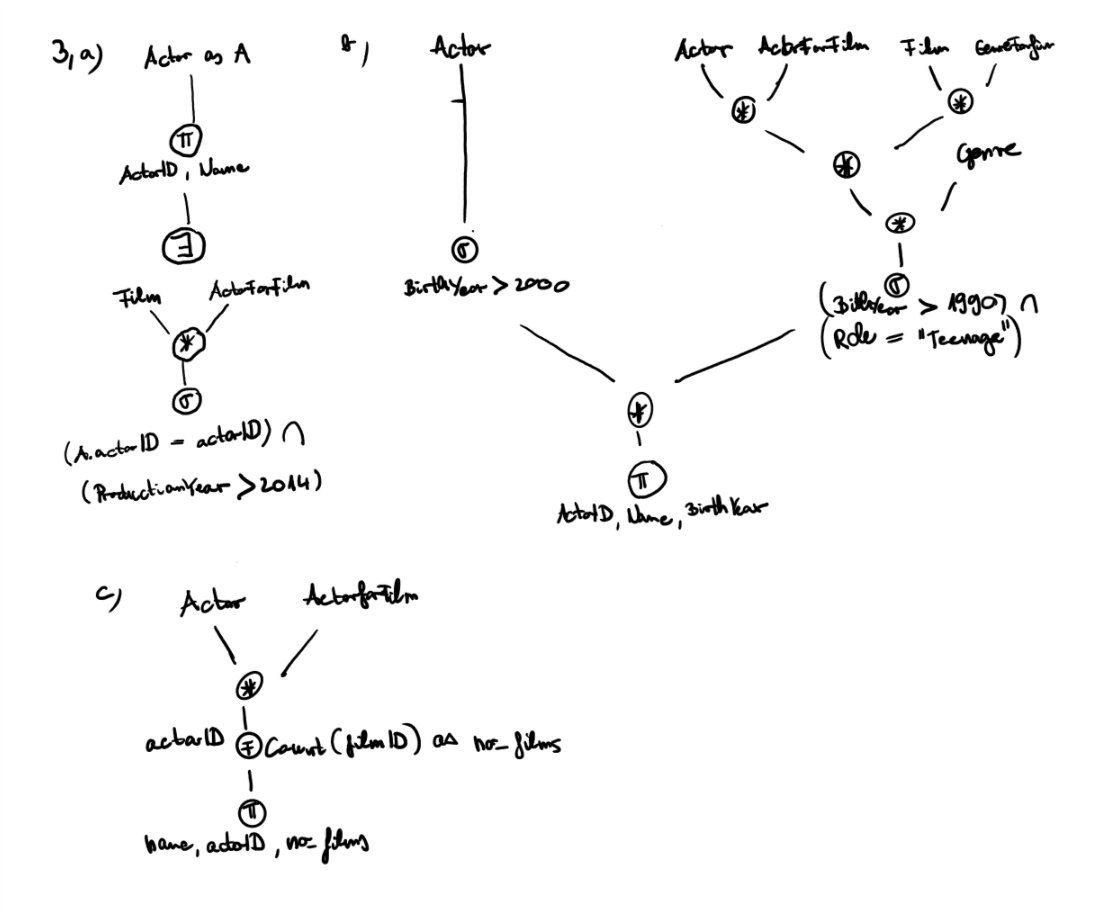 3, a) Actor as A
π
ActorID, Name
∃
Film ActorForFilm
*
σ
(A.actorID = actorID) ∩
(ProductionYear > 2014)
b) Actor
σ
BirthYear > 2000
Actor ActorForFilm Film GenreForFilm
* *
*
Genre
*
σ
(BirthYear > 1990) ∩
(Role = "Teenage")
*
π
ActorID, Name, BirthYear
c) Actor ActorforFilm
*
actorID F Count (filmID) as no_films
π
name, actorID, no_films